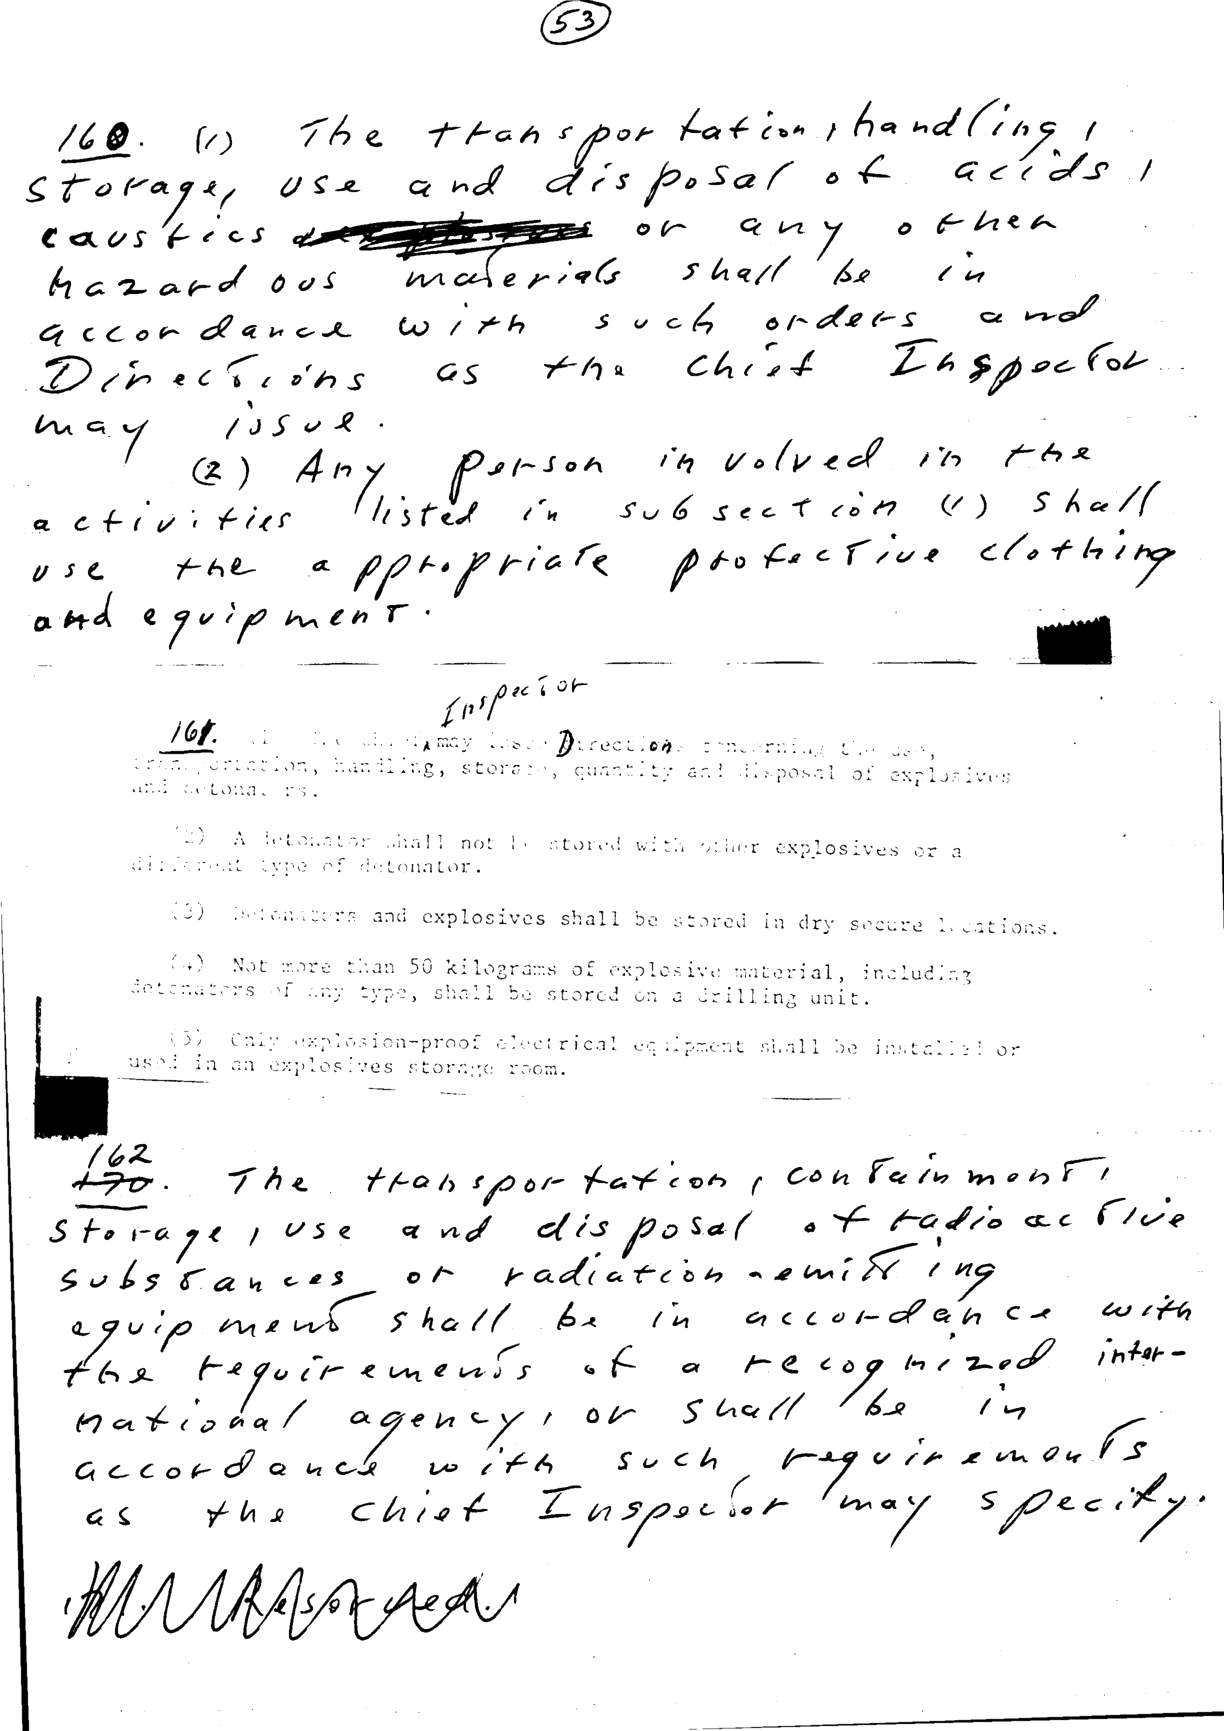 53
160. (1) The transportation, handling,
storage, use and disposal of acids,
caustics or any other
hazardous materials shall be in
accordance with such orders and
Directions as the Chief Inspector
may issue.
(2) Any person involved in the
activities listed in subsection (1) shall
use the appropriate protective clothing
and equipment.
Inspector
161. may Directions concerning the use,
transportation, handling, storage, quantity and disposal of explosives
and detonators.
(2) A detonator shall not be stored with other explosives or a
different type of detonator.
(3) Detonators and explosives shall be stored in dry secure locations.
(4) Not more than 50 kilograms of explosive material, including
detonators of any type, shall be stored on a drilling unit.
(5) Only explosion-proof electrical equipment shall be installed or
used in an explosives storage room.
162
170. The transportation, containment,
storage, use and disposal of radioactive
substances or radiation-emitting
equipment shall be in accordance with
the requirements of a recognized inter-
national agency, or shall be in
accordance with such requirements
as the Chief Inspector may specify.
Reserved.